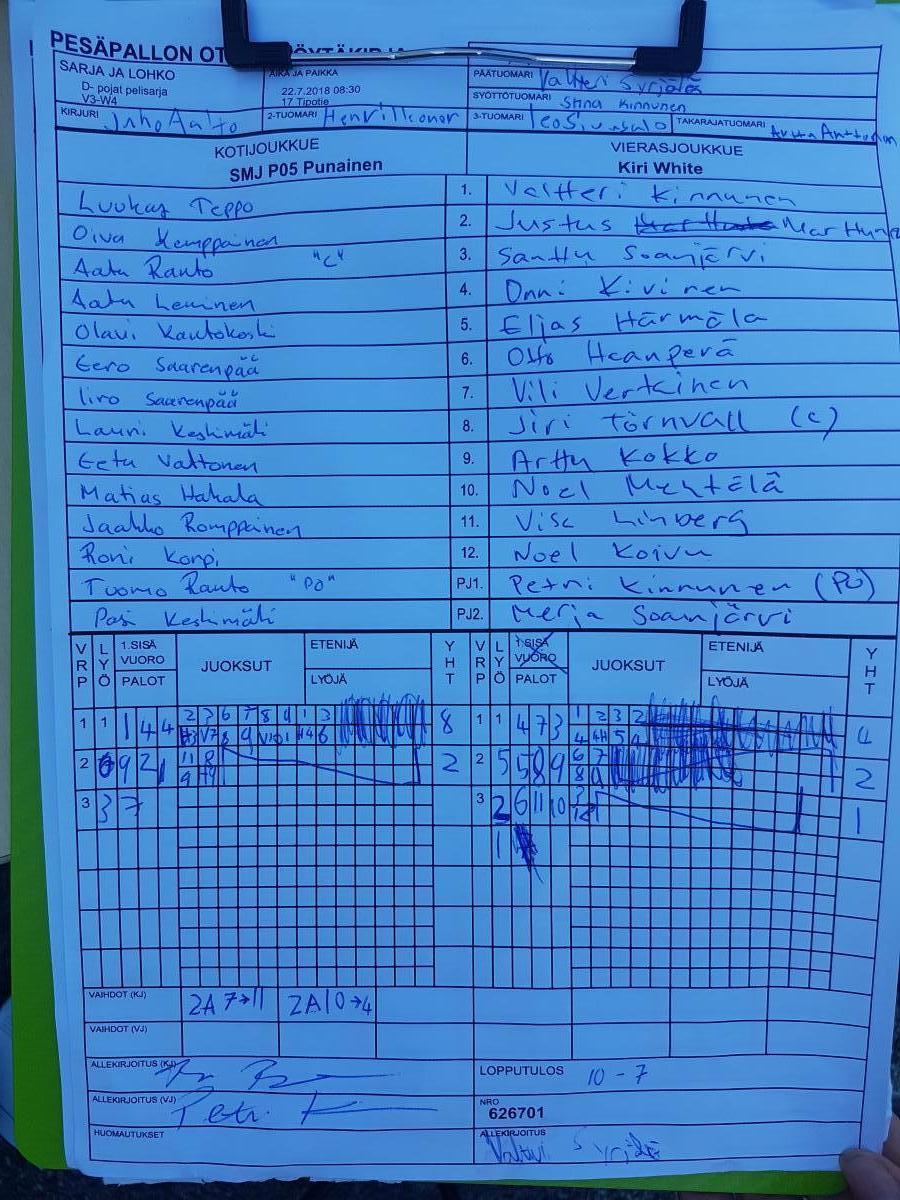 PESÄPALLON OT ÖYTÄKIRJA
SARJA JA LOHKO
D- pojat pelisarja
V3-W4
AIKA JA PAIKKA
22.7.2018 08:30
17 Tipotie
PÄÄTUOMARI Valtteri Syrjälä
SYÖTTÖTUOMARI Stina Kinnunen
KIRJURI Juho Aalto
2-TUOMARI
3-TUOMARI
TAKARAJATUOMARI
KOTIJOUKKUE
SMJ P05 Punainen
VIERASJOUKKUE
Kiri White
Luukas Teppo 1. Valtteri Kinnunen
Oiva Kemppainen 2. Justus
Aatu Rauto "C" 3. Santtu Soanjärvi
Aatu Leminen 4. Onni Kivinen
Olavi Kautokoski 5. Eljas Härmälä
Eero Saarenpää 6. Otto Haanperä
Iiro Saarenpää 7. Vili Vertainen
Lauri Keskimäki 8. Jiri Törnvall (C)
Eetu Valtonen 9. Arttu Kokko
Matias Hakala 10. Noel Mehtälä
Jaakko Romppainen 11. Linberg
Roni Korpi 12. Noel Koivu
Tuomo Rauto "PO" PJ1. Petri Kinnunen (PÖ)
Pasi Keskimäki PJ2. Merja Soanjärvi
VRP LYÖ 1.SISÄ VUORO PALOT JUOKSUT ETENIJÄ LYÖJÄ YHT VRP LYÖ 1.SISÄ VUORO PALOT JUOKSUT ETENIJÄ LYÖJÄ YHT
1 1 1 4 4 2 3 6 7 8 9 1 3 8 1 1 4 7 3 1 2 3 2 4
2 9 2 1 11 8 2 2 5 5 8 9 6 7 2
8 9
3 3 7 3 2 6 11 10 1
1
VAIHDOT (KJ) 2A 7→11 2A10→4
VAIHDOT (VJ)
ALLEKIRJOITUS (KJ)
LOPPUTULOS 10-7
ALLEKIRJOITUS (VJ) Petri
NRO
626701
HUOMAUTUKSET
ALLEKIRJOITUS